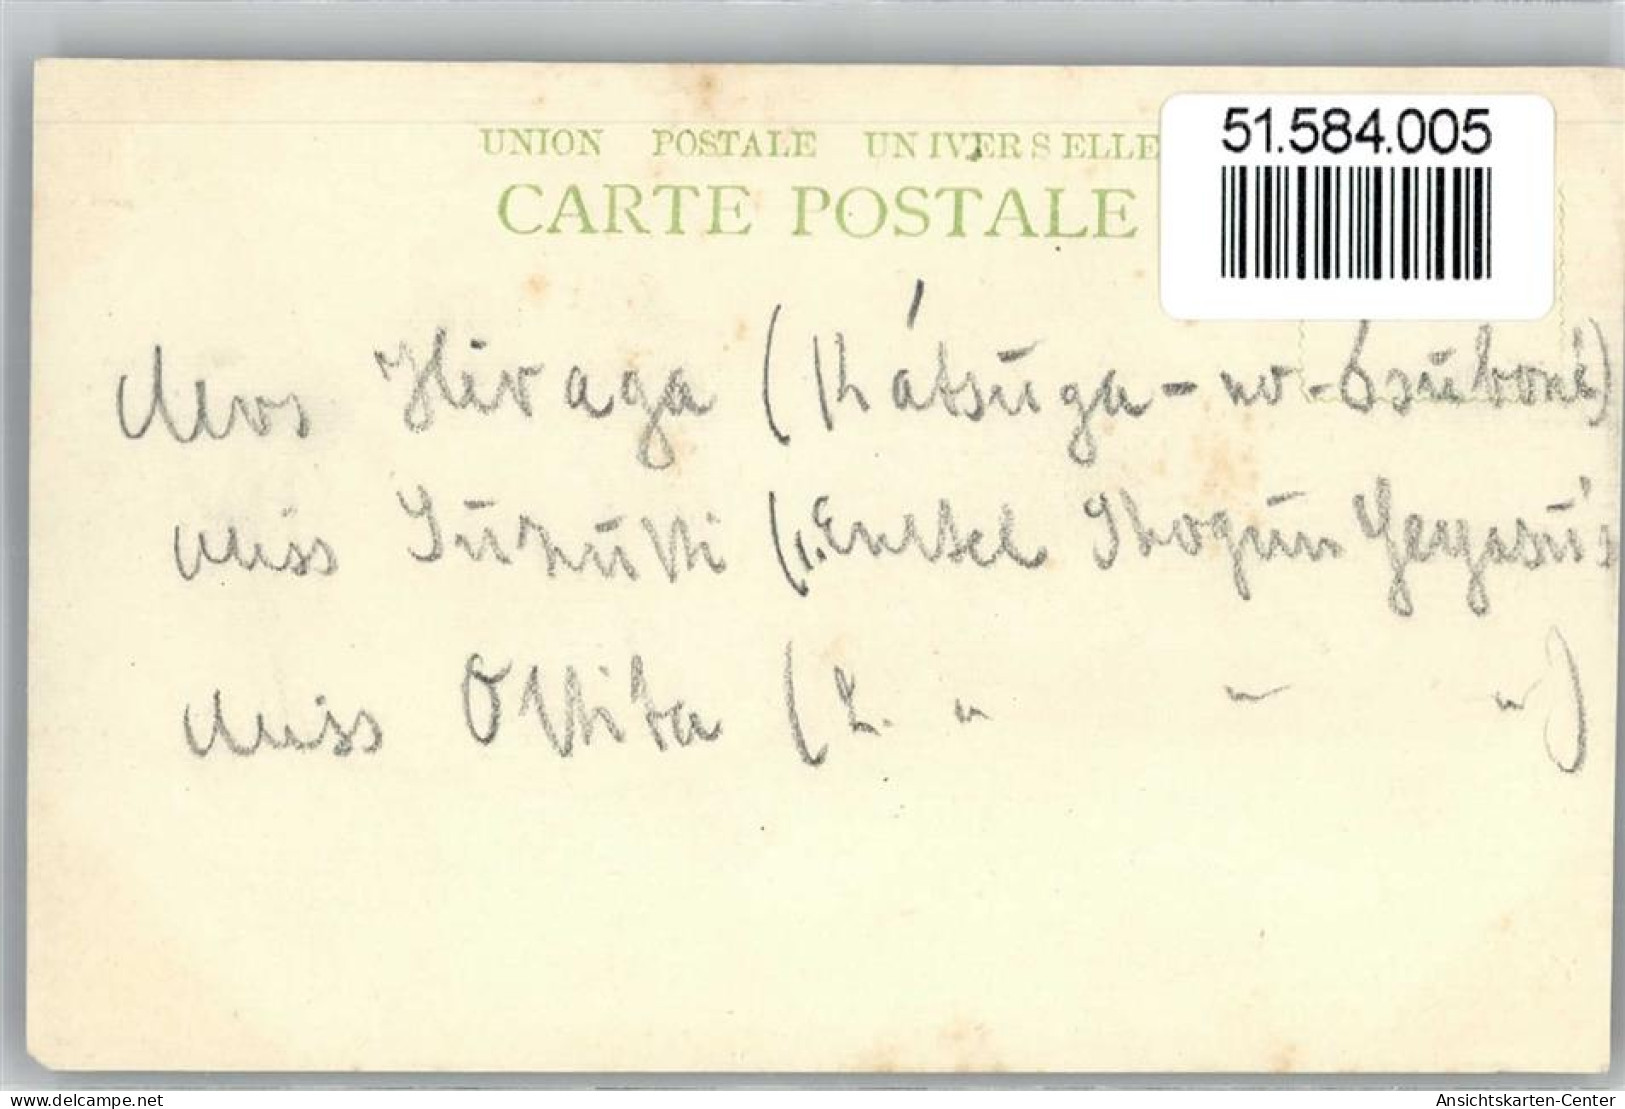 UNION POSTALE UNIVERSELLE
CARTE POSTALE
51.584.005
Mrs Hiraga (Kátsūga-no-Tsūboné)
Miss Sūzūki (1. Enkel Shogūn Yeyasū's
Miss Okita (2. " " ")
delcampe.net
Ansichtskarten-Center